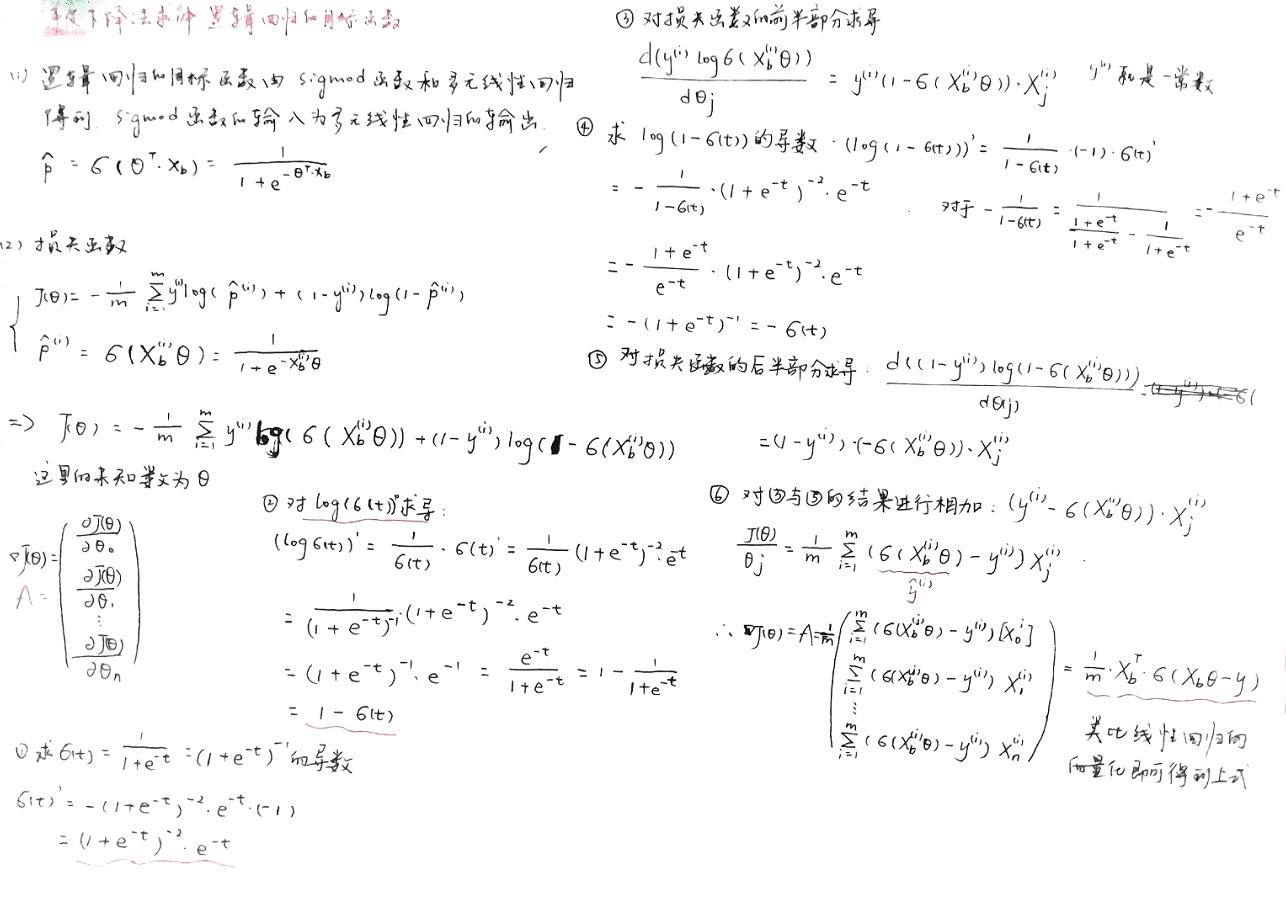 梯度下降法求解 逻辑回归的目标函数
(1) 逻辑回归的目标函数由 sigmod 函数和多元线性回归
得到. sigmod 函数的输入为多元线性回归的输出.
p̂ = σ(θᵀ·x_b) = 1/(1+e^{-θᵀ·x_b})
(2) 损失函数
J(θ) = -1/m Σ_{i=1}^{m} y^{(i)}log(p̂^{(i)}) + (1-y^{(i)})log(1-p̂^{(i)})
p̂^{(i)} = σ(X_b^{(i)}θ) = 1/(1+e^{-X_b^{(i)}θ})
=> J(θ) = -1/m Σ_{i=1}^{m} y^{(i)}log(σ(X_b^{(i)}θ)) + (1-y^{(i)})log(1-σ(X_b^{(i)}θ))
这里的未知参数为θ
∇J(θ) = A = (∂J(θ)/∂θ₀ ∂J(θ)/∂θ₁ ⋮ ∂J(θ)/∂θn)
① 求 σ(t) = 1/(1+e^{-t}) = (1+e^{-t})^{-1} 的导数
σ(t)' = -(1+e^{-t})^{-2}·e^{-t}·(-1)
= (1+e^{-t})^{-2}·e^{-t}
② 对 log(σ(t)) 求导:
(log σ(t))' = 1/σ(t) · σ(t)' = 1/σ(t) (1+e^{-t})^{-2}·e^{-t}
= 1/(1+e^{-t})^{-1}·(1+e^{-t})^{-2}·e^{-t}
= (1+e^{-t})^{-1}·e^{-1} = e^{-t}/(1+e^{-t}) = 1 - 1/(1+e^{-t})
= 1-σ(t)
③ 对损失函数的前半部分求导
d(y^{(i)} log σ(X_b^{(i)}θ))/dθj = y^{(i)}(1-σ(X_b^{(i)}θ))·X_j^{(i)} y^{(i)} 是一常数
④ 求 log(1-σ(t)) 的导数. (log(1-σ(t)))' = 1/(1-σ(t)) ·(-1)·σ(t)'
= -1/(1-σ(t)) ·(1+e^{-t})^{-2}·e^{-t} . 对于 -1/(1-σ(t)) = 1/((1+e^{-t})/(1+e^{-t}) - 1/(1+e^{-t})) = -(1+e^{-t})/e^{-t}
= -(1+e^{-t})/e^{-t} · (1+e^{-t})^{-2}·e^{-t}
= -(1+e^{-t})^{-1} = -σ(t)
⑤ 对损失函数的后半部分求导: d((1-y^{(i)})log(1-σ(X_b^{(i)}θ)))/dθ(j)
= (1-y^{(i)})·(-σ(X_b^{(i)}θ))·X_j^{(i)}
⑥ 对③与⑤的结果进行相加: (y^{(i)}-σ(X_b^{(i)}θ))·X_j^{(i)}
J(θ)/θj = 1/m Σ_{i=1}^{m} (σ(X_b^{(i)}θ)-y^{(i)})X_j^{(i)}.
ŷ^{(i)}
∴ ∇J(θ) = A = 1/m (Σ_{i=1}^{m}(σ(X_b^{(i)}θ)-y^{(i)})[X_0^{i}] Σ_{i=1}^{m}(σ(X_b^{(i)}θ)-y^{(i)}) X_1^{(i)} ⋮ Σ_{i=1}^{m}(σ(X_b^{(i)}θ)-y^{(i)}) X_n^{(i)}) = 1/m·X_bᵀ·σ(X_bθ-y)
类比线性回归的
向量化即可得到上式